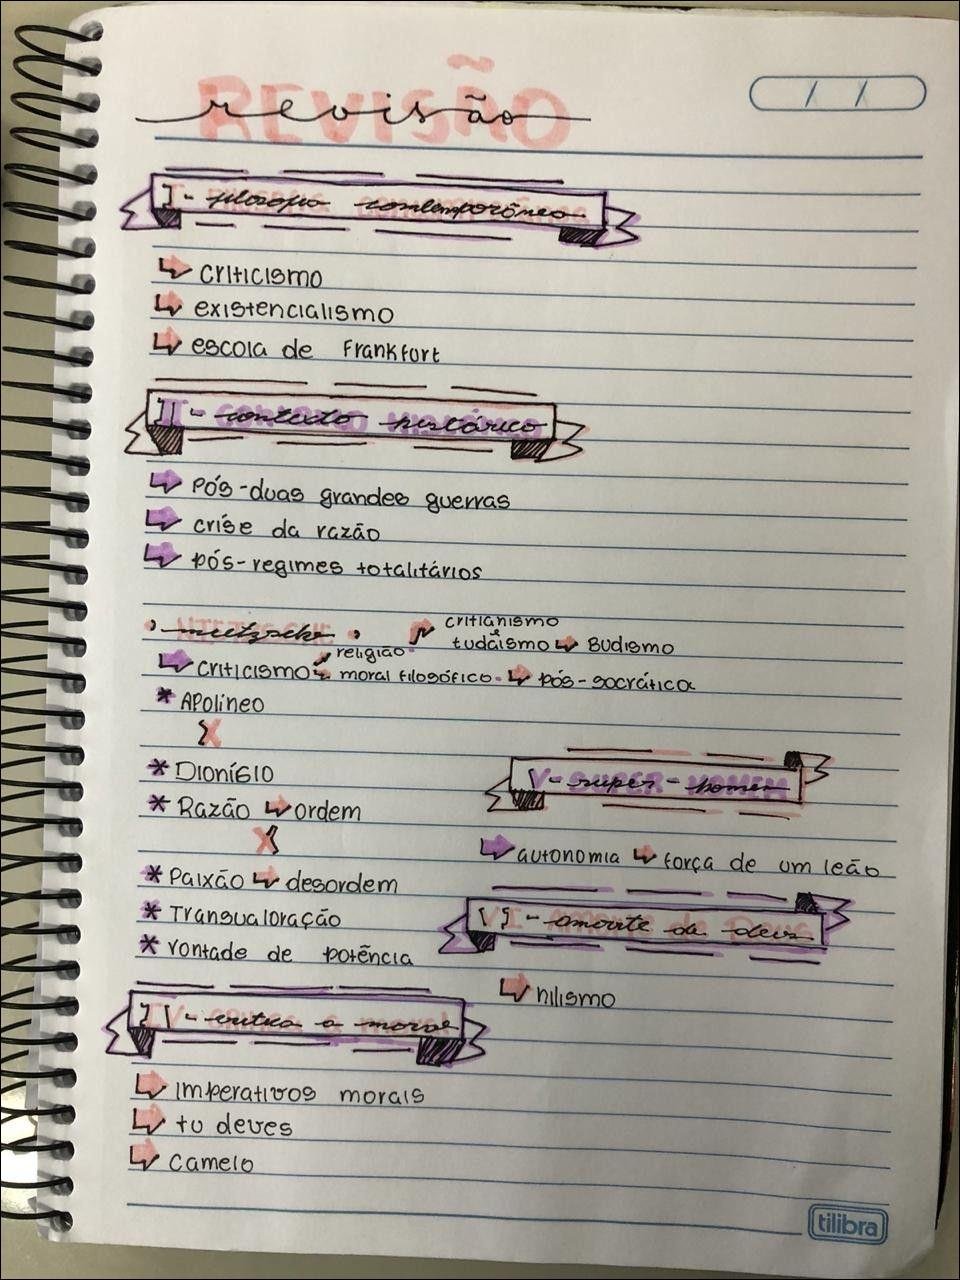 revisão
I - filosofia contemporânea
criticismo
existencialismo
escola de Frankfort
II - contexto histórico
Pós-duas grandes guerras
crise da razão
pós-regimes totalitários
• nietzsche •
critianismo
tudaísmo Budismo
religião
criticismo moral filosófico. pós-socrática
* APolíneo
X
* Dionísio
* Razão ordem
X
* Paixão desordem
* Transvaloração
* vontade de potência
IV - crítica a moral
imperativos morais
tu deves
camelo
V - super-homem
autonomia força de um leão
VI - amorte de deus
nilismo
tilibra